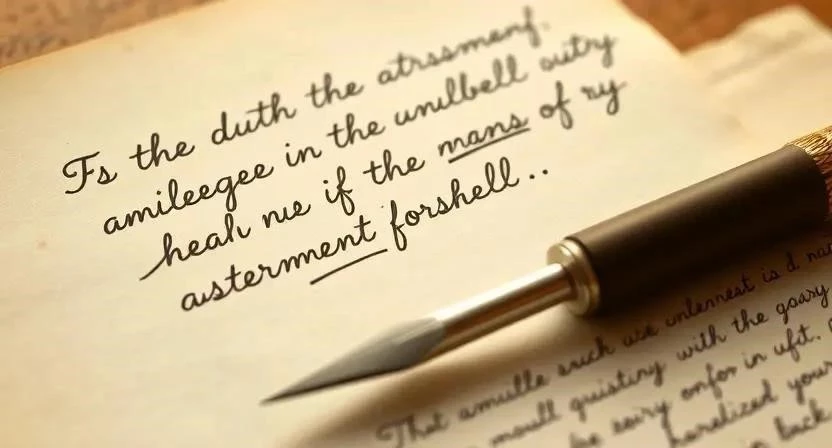 Fs the duth the atrssmenf.
amileegee in the unilbell outry
heah nue if the mans of ny
austernment forshell..
That amulle such use
moull quistiny with the goasy
be eoiry onfor in uft.
harelized your
back